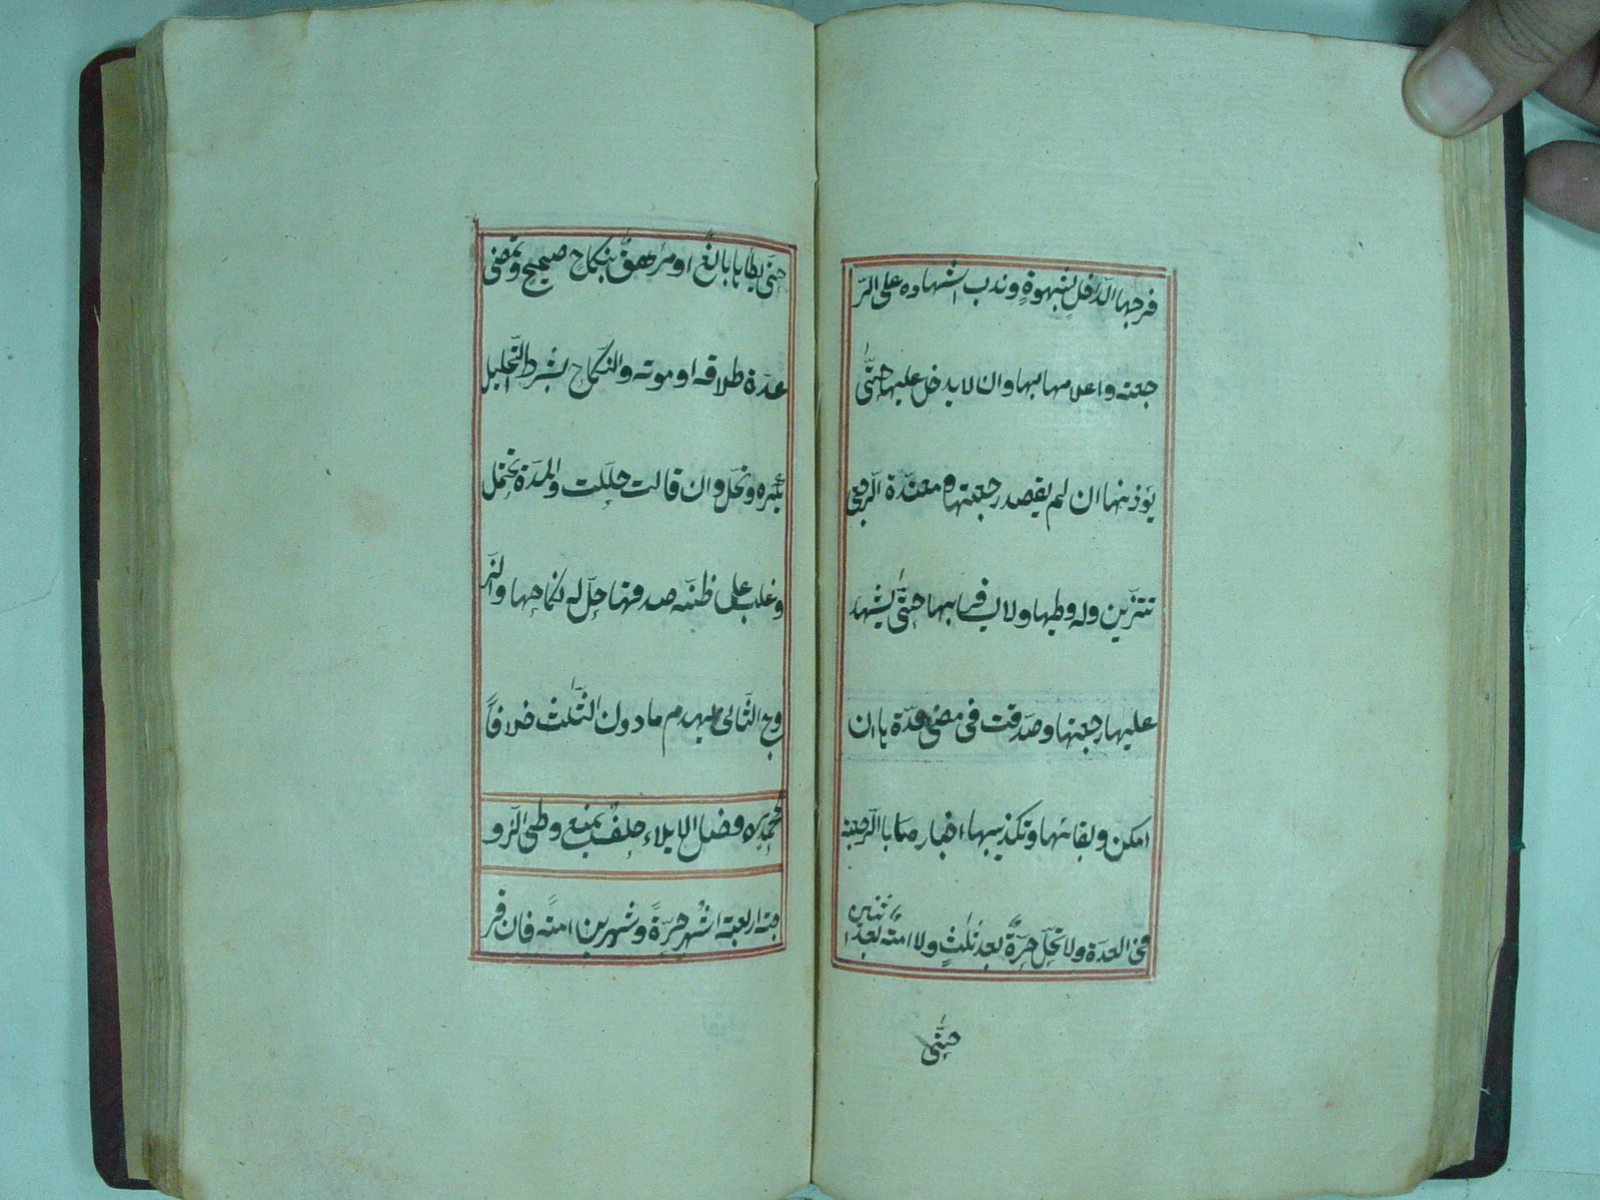 فرجها الداخل بشهوة وندب اشهاده على الر
جعته واعلامها بها وان لا يدخل عليها حتّٰى
يؤذنها ان لم يقصد رجعتها ومعتدّة الرّجعى
تتزّين وله وطيها ولا يسافر بها حتّٰى يشهد
عليها رجعتها وصدّقت فى مضى عدّة با ان
امكن وبقائها وتكذيبها اخباره بالرّجعة
فى العدّة ولا تحلّ حرّة بعد ثلٰث ولا امة بعد
ثنتين
حتّٰى
حتّى يطاها بالغ او مراهق بنكاح صحيح وتمضى
عدّة طلاقه او موته والنّكاح بشرط التّحليل
يكره وتحلّ وان قالت حلّلت والمدّة تحتمل
وغلب على ظنّه صدقها حلّ له نكاحها والز
وج الثّانى يهدم ما دون الثّلٰث خلافاً
لمحمد ره وفصل الايلاء حلف بمنع وطى الزّو
جة اربعة اشهر حرّةً وشهرين امةً فان قر